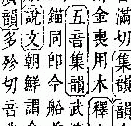 滿切集韻
金喪用木釋
五音集韻武
錨同卽今船
說文朝鮮謂
韻多殄切音